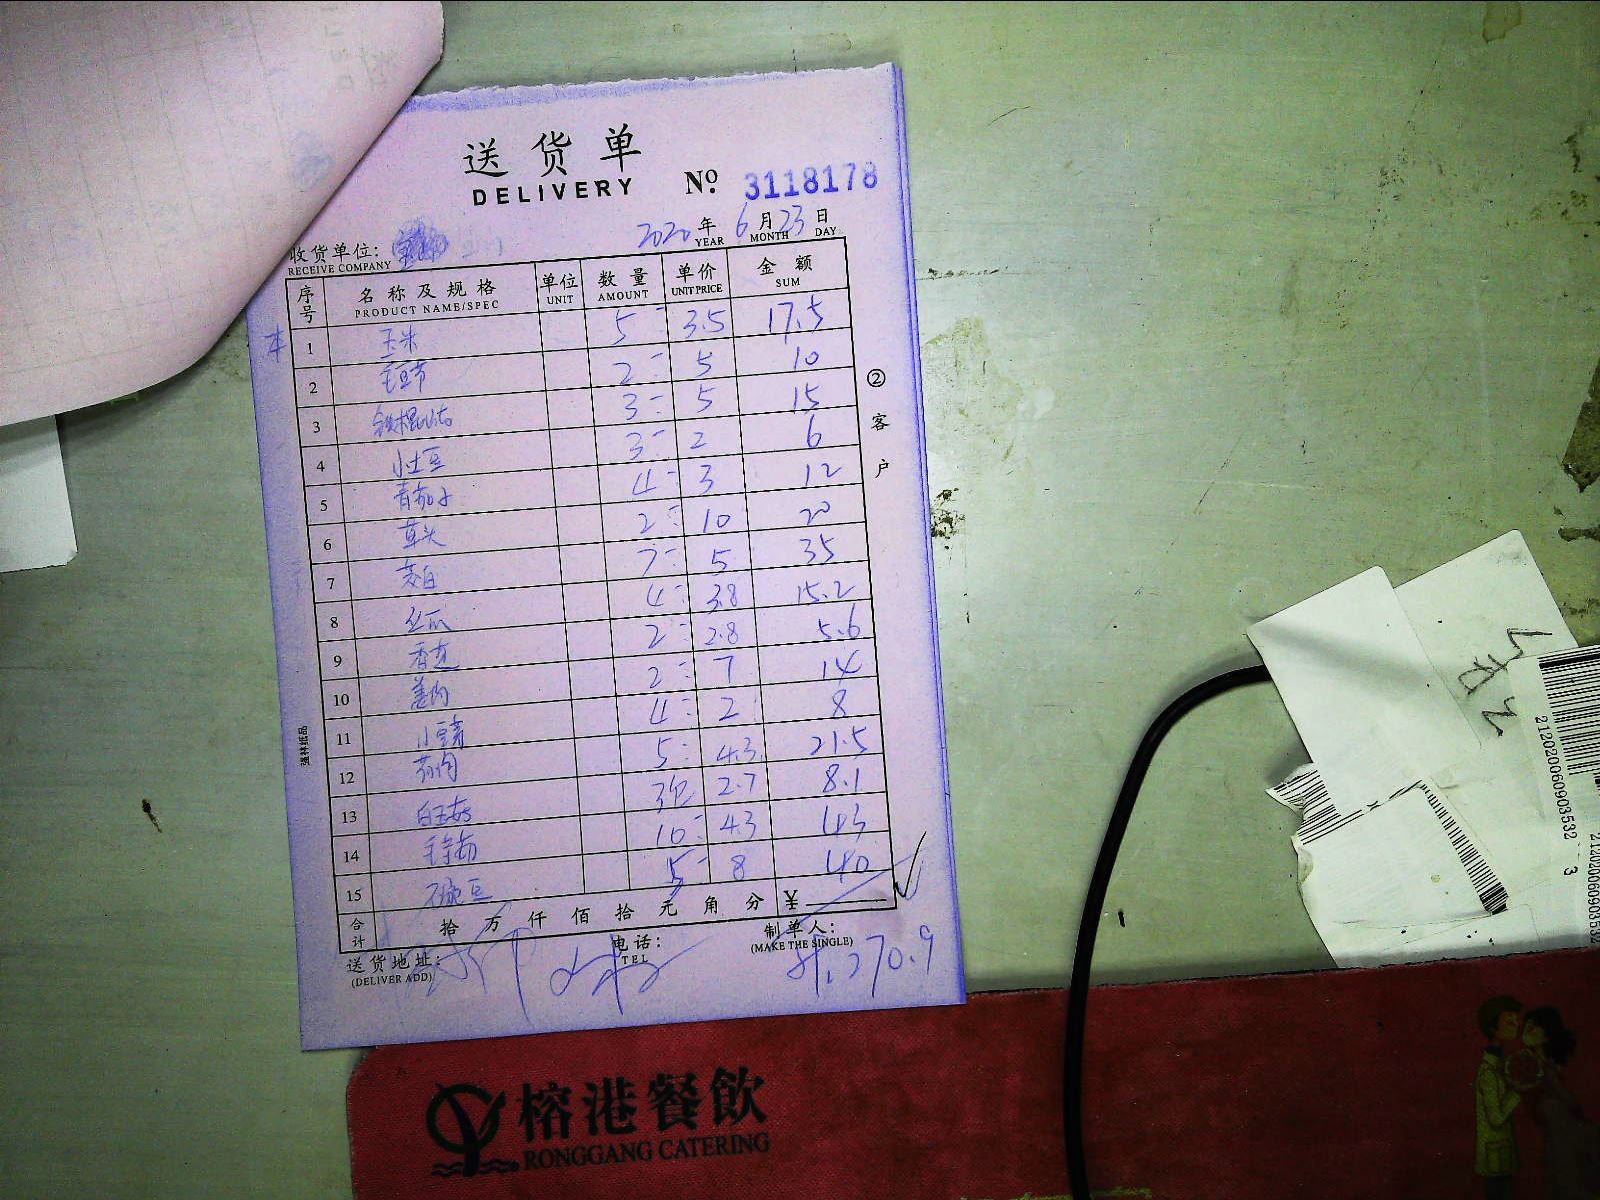 送货单
DELIVERY № 3118178
2020 年 6 月 23 日
YEAR MONTH DAY
收货单位:
RECEIVE COMPANY
序号 名称及规格 单位 数量 单价 金额
PRODUCT NAME/SPEC UNIT AMOUNT UNIT PRICE SUM
本 1 玉米 5 3.5 17.5
2 毛豆节 2 5 10
3 铁棍山 3 5 15
4 小土豆 3 2 6
5 青茄子 4 3 12
6 草头 2 10 20
7 茭白 7 5 35
8 丝瓜 4 3.8 15.2
9 香 2 2.8 5.6
10 2 7 14
11 小 4 2 8
12 5 4.3 21.5
13 白玉菇 3包 2.7 8.1
14 毛芋艿 10 4.3 43
15 豌豆 5 8 40
合计 拾 万 仟 佰 拾 元 角 分 ¥
送货地址: 电话: 制单人:
(DELIVER ADD) TEL (MAKE THE SINGLE)
270.9
②客户
强林纸品
212020060903532 3
212020060903532
榕港餐飲
RONGGANG CATERING